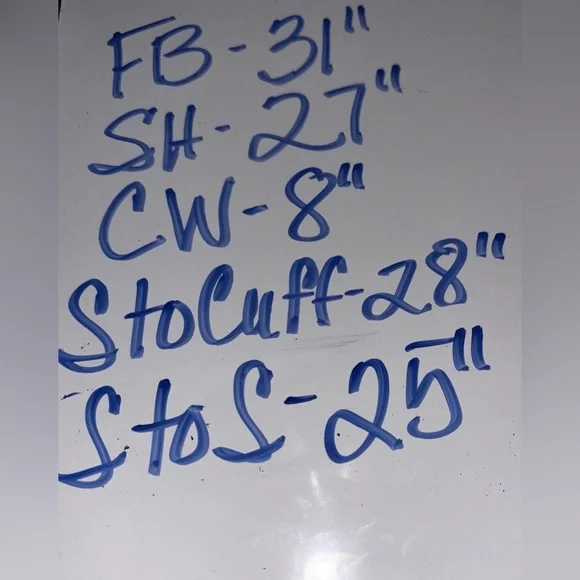 FB-31"
SH-27"
CW-8"
StoCuff-28"
StoS-25"